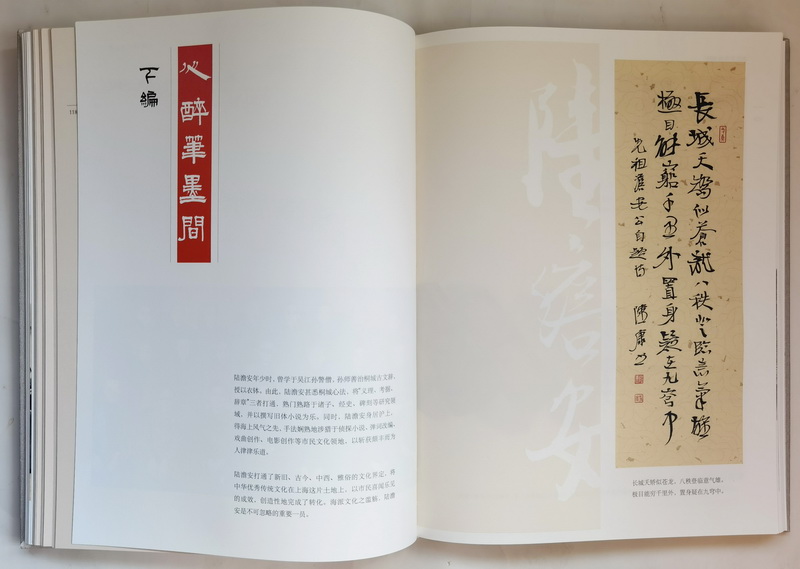 下编
心醉笔墨間
陆澹安年少时，曾学于吴江孙警僧，孙师善治桐城古文辞，
授以衣钵。由此，陆澹安甚悉桐城心法，将“义理、考据、
辞章”三者打通，熟门熟路于诸子、经史、碑刻等研究领
域，并以撰写旧体小说为乐。同时，陆澹安身居沪上，
得海上风气之先，手法娴熟地涉猎于侦探小说、弹词改编、
戏曲创作、电影创作等市民文化领地，以斩获颇丰而为
人津津乐道。
陆澹安打通了新旧、古今、中西、雅俗的文化界定，将
中华优秀传统文化在上海这片土地上，以市民喜闻乐见
的成效，创造性地完成了转化。海派文化之滥觞，陆澹
安是不可忽略的重要一员。
陸澹安
長城天矯似蒼龍八秩登臨意氣雄
極目能窮千里外置身疑在九穹中
先祖澹安公自題詩
陸康
长城天矫似苍龙，八秩登临意气雄。
极目能穷千里外，置身疑在九穹中。